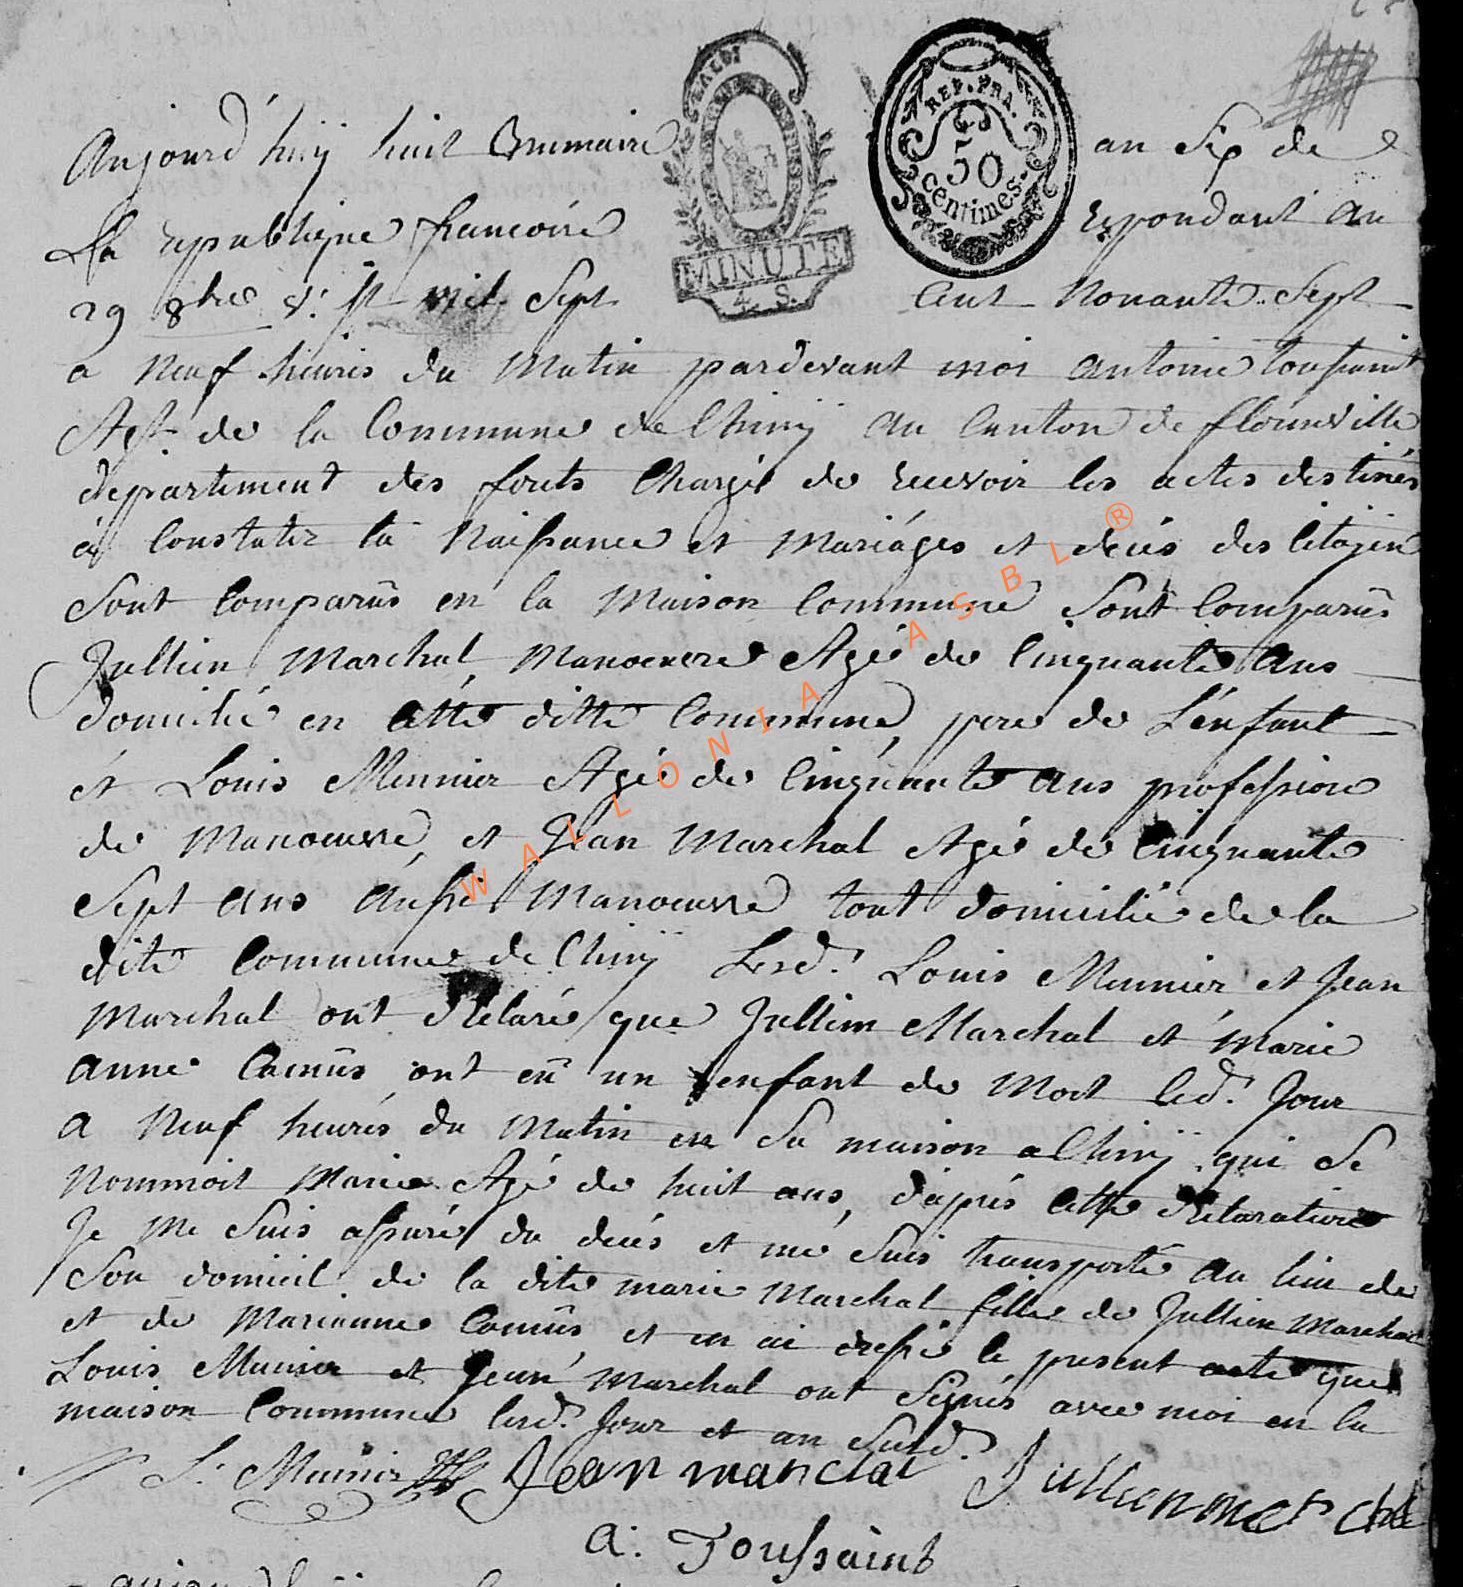 Aujourd'huÿ huit Brumaire an Six de
La republique francoise repondant au
29 8bre v: st mil Sept Cent Nonante Sept
a Neuf heures du Matin pardevant moi antoine toussaint
Agt de la Commune de Chinÿ au Canton de florenville
departement des forets Chargé de recevoir les actes destinés
à Constater la Naissance et Mariages et décés des Citoÿen
Sont Comparûs en la Maison Commune Sont Comparûs
Jullien Marchal Manoeuvre Agé de Cinquante Ans
domicilié en Cette ditte Commune, pere de L'enfant
et Louis Meunier Agé de Cinquante ans profession
de Manoeuvre, et Jean Marchal Agé de Cinquante
Sept ans aussi Manoeuvre tout domicilié de la
dite Commune de Chinÿ Lesd. Louis Meunier et Jean
Marchal ont déclaré que Jullien Marchal et Marie
anne Camûs ont eû un enfant de Mort led. Jour
a Neuf heurés du Matin en Sa maison a Chinÿ qui Se
Nommoit Marie Agé de huit ans, d'aprés Cette déclaration
Je Me Suis assuré du décés et me Suis transporté au lieu de
Son domicil de la dite marie Marchal fille de Jullien Marchal
et de Marianne Camûs, et en ai dressé le present acte que
Louis Munier et Jean Marchal ont Signés avec moi en la
maison Commune lesd. Jour et an Susd.
L. Meunier Jean marchal Jullien marchal
a: Toussaint
REP. FRA.
50
centimes.
MINUTE
4. S.
WALLONIA ASBL ®